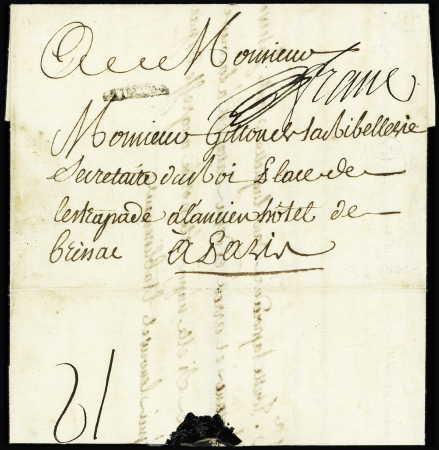 A Monsieur
franc
Monsieur de la Ribellerie
Secretaire du Roi place de
lestrapade à l'ancien hôtel de
brissac à Paris